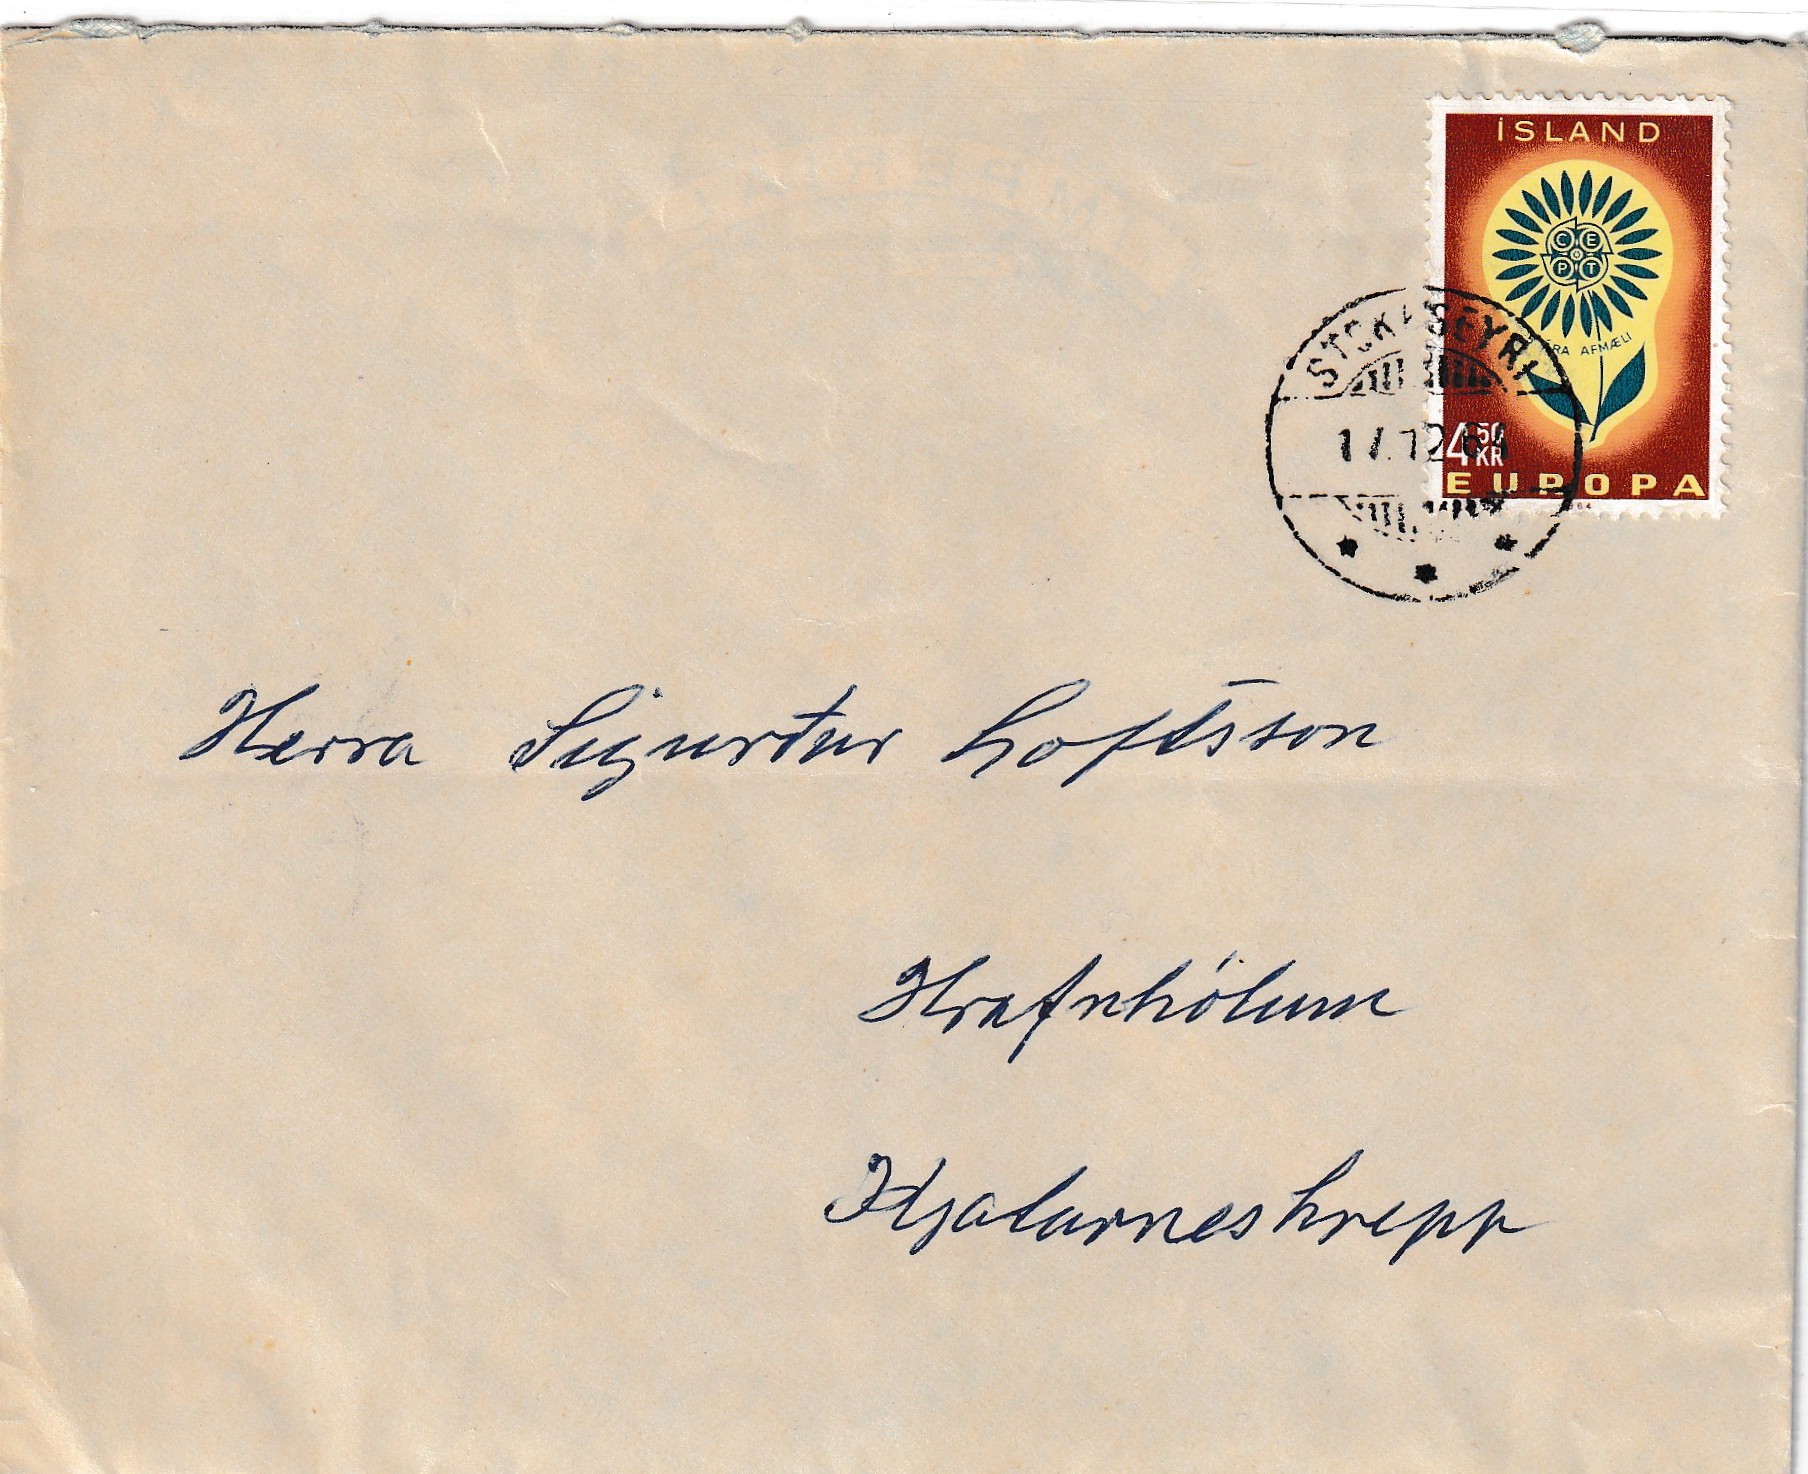 ÍSLAND
C E
P T
ÁRA AFMÆLI
4 50
KR
EUROPA
STOKKSEYRI
17.12.64
Herra Sigurður Loftsson
Hrafnhólum
Kjalarneshrepp